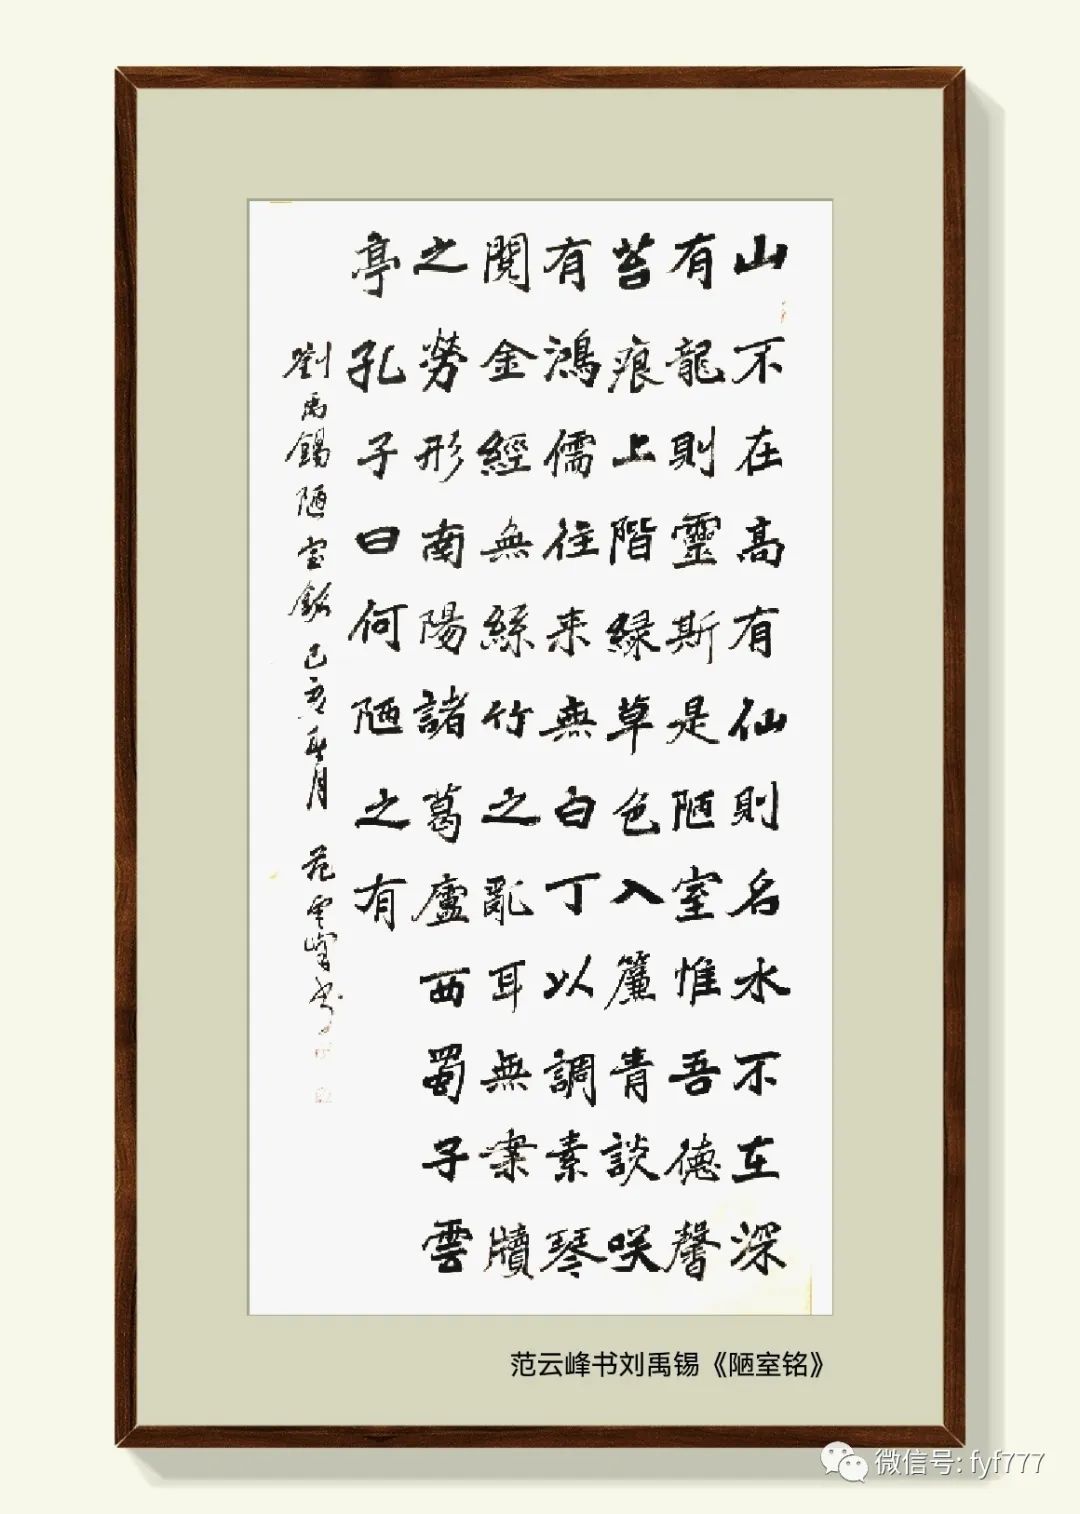 山不在高有仙則名水不在深
有龍則靈斯是陋室惟吾德馨
苔痕上階緑草色入簾青談咲
有鴻儒往来無白丁以調素琴
閱金經無絲竹之亂耳無案牘
之勞形南陽諸葛廬西蜀子雲
亭孔子曰何陋之有
劉禹錫陋室銘 己亥春月 范雲峰書
范云峰书刘禹锡《陋室铭》
微信号: fyf777